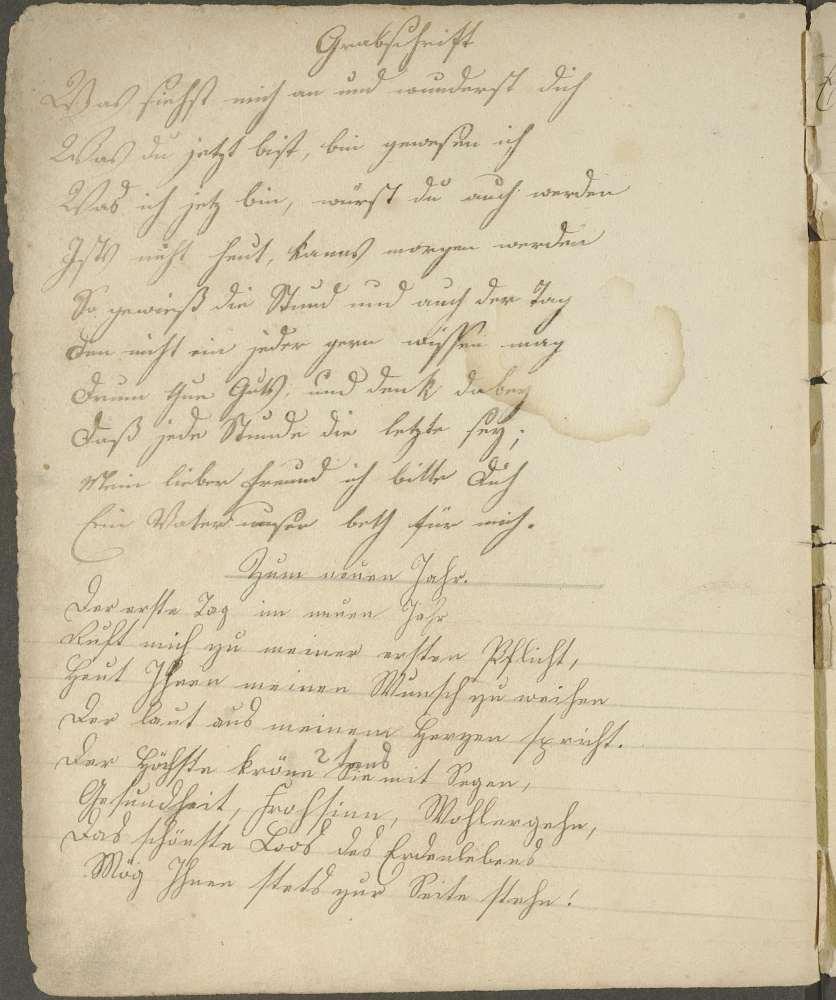 Grabschrift
Was siehst mich an und wunderst dich
Was du jetzt bist, bin gewesen ich
Was ich jetz bin, würst du auch werden
Ists nicht heut, kanns morgen werden
So gewieß die Stund und auch der Tag
Den nicht ein jeder gern wissen mag
Drum thue Guts, und denk dabey
Daß jede Stunde die letzte sey;
Mein lieber Freund ich bitte Dich
Ein Vater unser beth für mich.
Zum neuen Jahr.
Der erste Tag im neuen Jahr
Ruft mich zu meiner ersten Pflicht,
Heut Ihnen meinen Wunsch zu weihen
Der laut aus meinem Herzen spricht.
Der Höchste kröne Sie mit Segen,
Gesundheit, Frohsinn, Wohlergehn,
Das schönste Loos des Erdenlebens
Mög Ihnen stets zur Seite stehn!